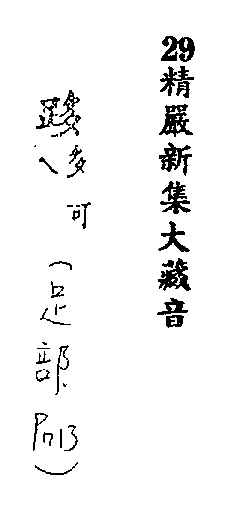 29精嚴新集大藏音
可(足部P.13)